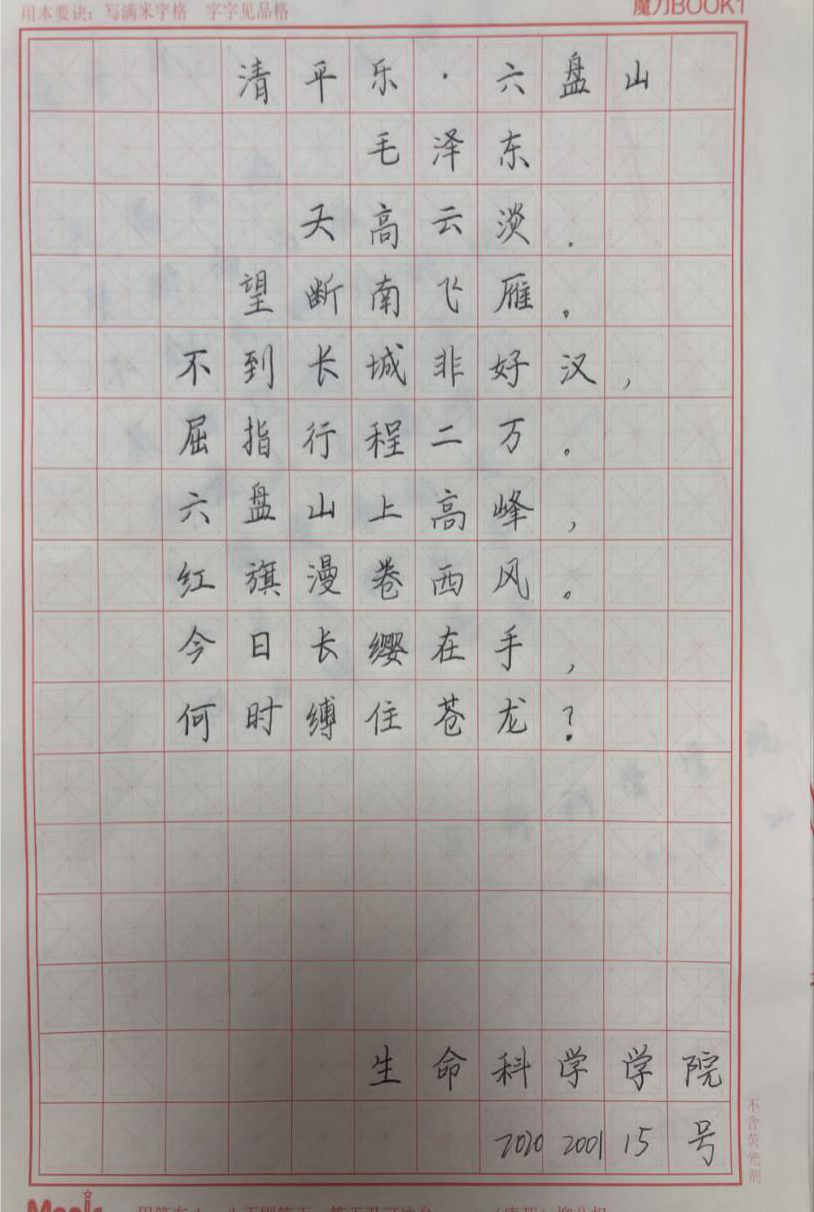 用本要诀：写满米字格 字字见品格
魔力BOOK1
清平乐·六盘山
毛泽东
天高云淡.
望断南飞雁。
不到长城非好汉，
屈指行程二万。
六盘山上高峰，
红旗漫卷西风。
今日长缨在手，
何时缚住苍龙？
生命科学学院
2020 2001 15 号
不含荧光剂